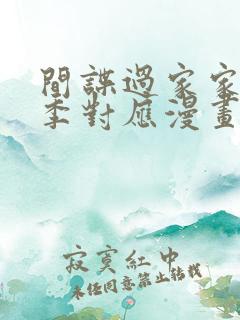 間諜過家家
季對應漫畫
寂寞紅中
未經同意禁止轉載